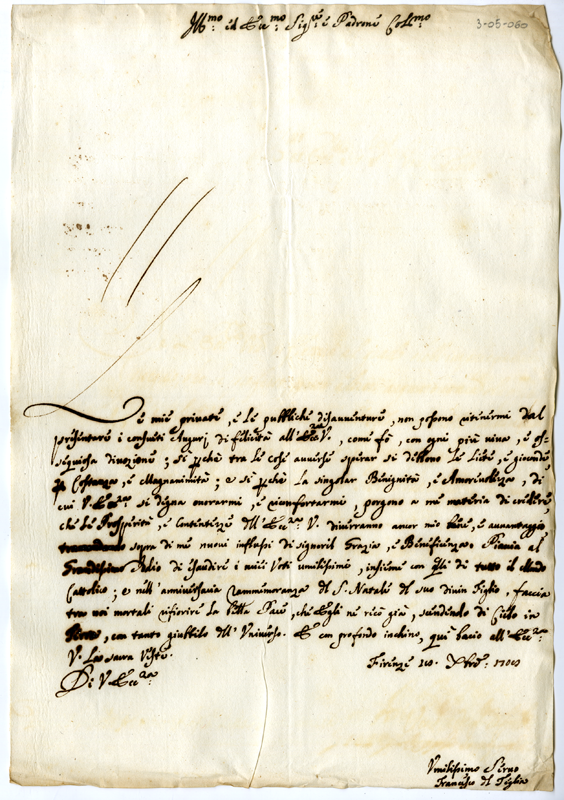 Ill:mo ed Ecc:mo Sig:re e Padrone Coll:mo
3-05-060
Le mie private, e le pubbliche disavventure, non possono ritenermi dal
presentare i consueti Augurj di felicità all'Ecc:za V., come fò, con ogni più viva, e os-
sequiosa divozione; sì perche tra le cose avverse sperar si debbono le liete, e gioconde
Costanza, e Magnanimità; e sì perche la singolar Benignità, e Amorevolezza, di
cui V. Ecc:za si degna onorarmi, e riconfortarmi, porgono a me materia di credere
che le Prosperità, e Contentezze dell'Ecc:za V. diverranno ancor mio bene, e avvantaggio
sopra di me nuovi influssi di signoril Grazia, e Beneficenza. Piaccia al
Grandissimo Dio di esaudire i miei Voti umilissimi, insieme con quelli di tutto il Mondo
Cattolico; e nell'anniversaria Rammemoranza del S. Natale del suo divin Figlio, faccia
tra noi mortali rifiorire la Pace, che Egli ne recò già, scendendo di Cielo in
Terra, con tanto giubbilo dell'Universo. E con profondo inchino, qui bacio all'Ecc:za
V. la sacra Veste.
Firenze 10. Xbre: 1700
Di V. Ecc:za
Umilissimo Servo
Francesco del Teglia